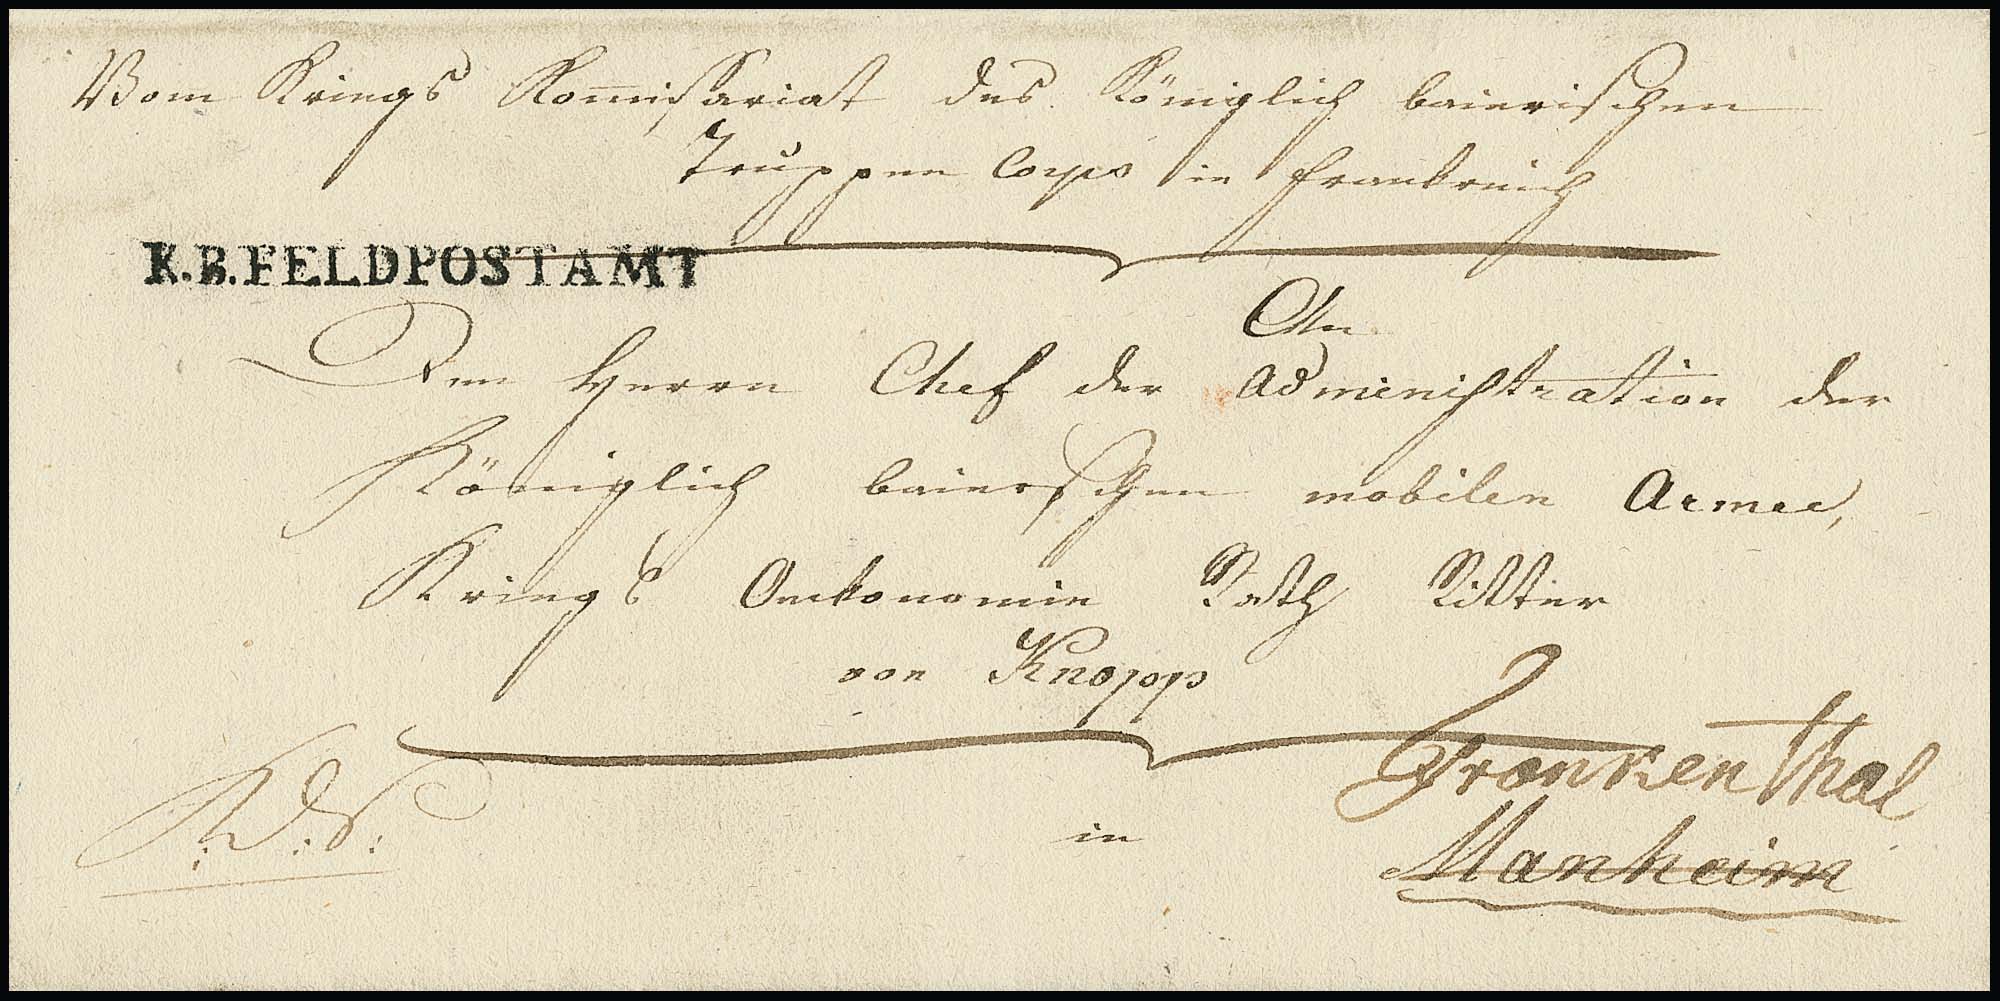 Vom Kriegs Kommissariat des Königlich baierischen
Truppen Corps in Frankreich
K.B.FELDPOSTAMT
An
Den Herrn Chef der Administration der
Königlich baierischen mobilen Armee,
Kriegs Oeckonomie Rath Ritter
von Knopp
Frankenthal
K.D.S.
in
Manheim